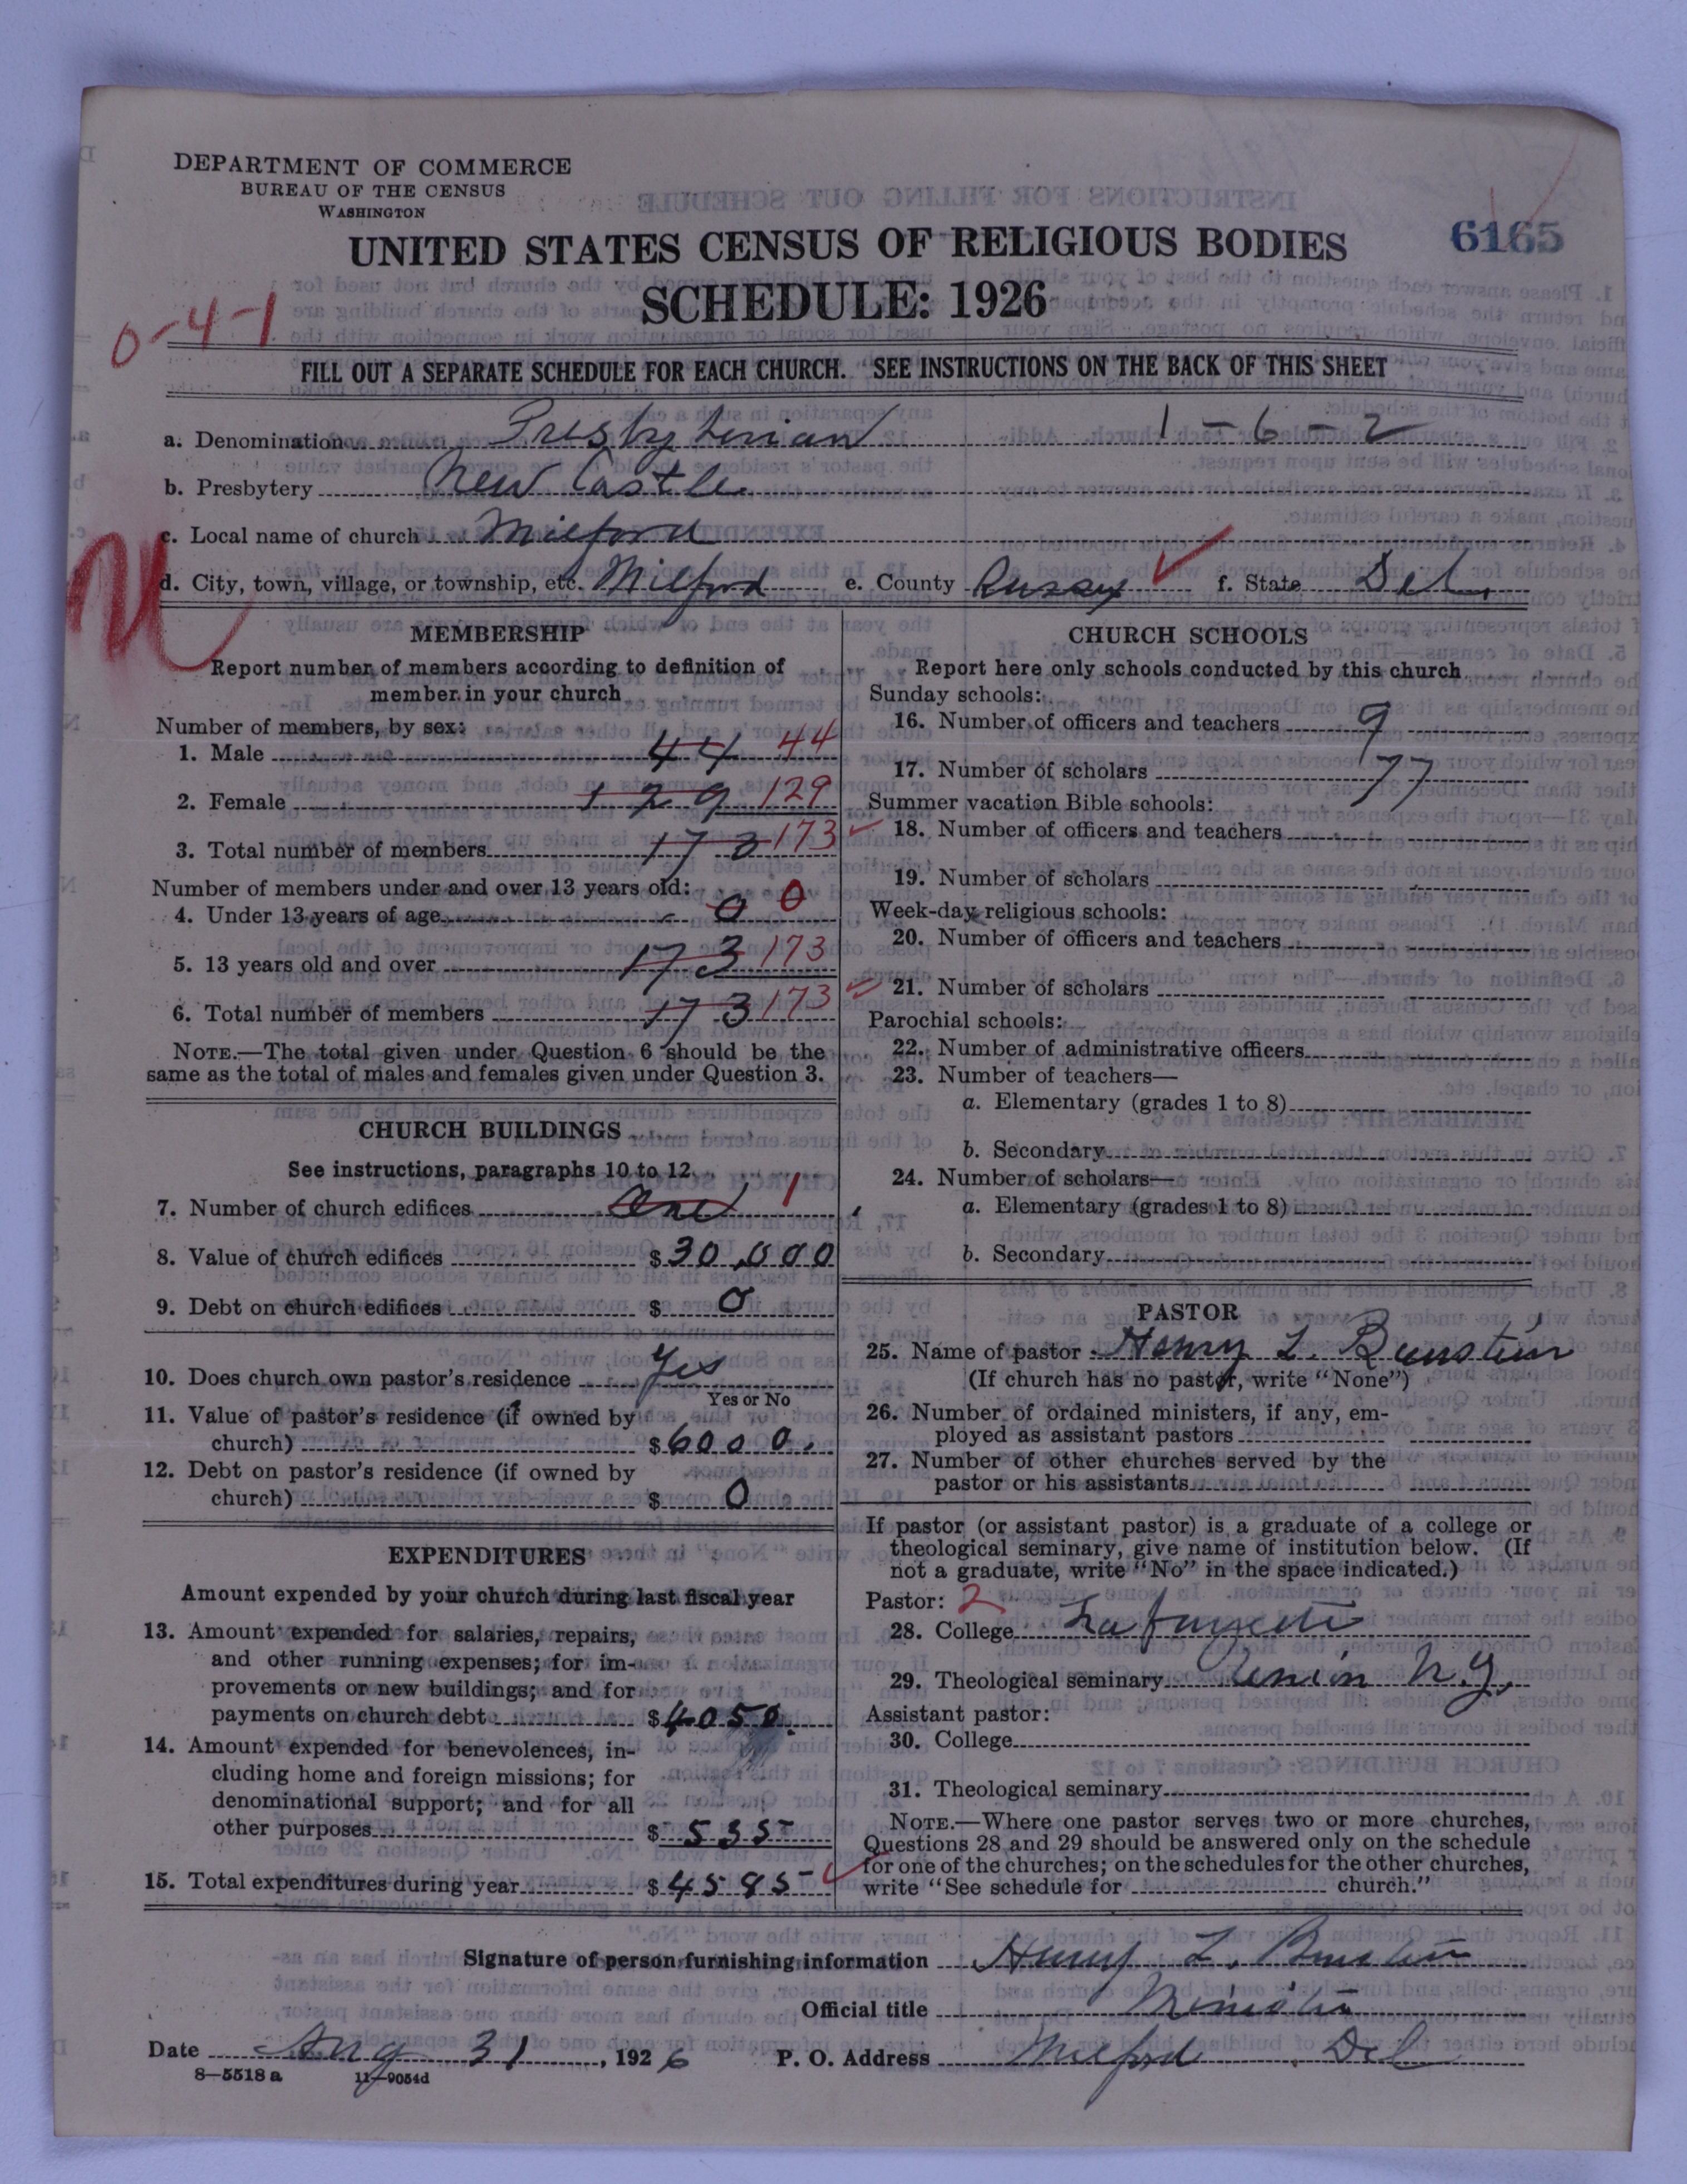 DEPARTMENT OF COMMERCE
BUREAU OF THE CENSUS
WASHINGTON
UNITED STATES CENSUS OF RELIGIOUS BODIES
6165
SCHEDULE: 1926
0-4-1
FILL OUT A SEPARATE SCHEDULE FOR EACH CHURCH. SEE INSTRUCTIONS ON THE BACK OF THIS SHEET
a. Denomination Presbyterian 1-6-2
b. Presbytery New Castle
c. Local name of church Milford
d. City, town, village, or township, etc. Milford e. County Sussex f. State Del.
MEMBERSHIP
Report number of members according to definition of
member in your church
Number of members, by sex:
1. Male 44 44
2. Female 129 129
3. Total number of members 173 173
Number of members under and over 13 years old:
4. Under 13 years of age 0 0
5. 13 years old and over 173 173
6. Total number of members 173 173
NOTE.—The total given under Question 6 should be the
same as the total of males and females given under Question 3.
CHURCH BUILDINGS
See instructions, paragraphs 10 to 12
7. Number of church edifices One 1
8. Value of church edifices $30,000
9. Debt on church edifices $ 0
10. Does church own pastor's residence Yes
Yes or No
11. Value of pastor's residence (if owned by
church) $6000.
12. Debt on pastor's residence (if owned by
church) $ 0
EXPENDITURES
Amount expended by your church during last fiscal year
13. Amount expended for salaries, repairs,
and other running expenses; for im-
provements or new buildings; and for
payments on church debt $4050.
14. Amount expended for benevolences, in-
cluding home and foreign missions; for
denominational support; and for all
other purposes $ 535
15. Total expenditures during year $4585
CHURCH SCHOOLS
Report here only schools conducted by this church
Sunday schools:
16. Number of officers and teachers 9
17. Number of scholars 77
Summer vacation Bible schools:
18. Number of officers and teachers
19. Number of scholars
Week-day religious schools:
20. Number of officers and teachers
21. Number of scholars
Parochial schools:
22. Number of administrative officers
23. Number of teachers—
a. Elementary (grades 1 to 8)
b. Secondary
24. Number of scholars—
a. Elementary (grades 1 to 8)
b. Secondary
PASTOR
25. Name of pastor Henry L. Bunstein
(If church has no pastor, write "None")
26. Number of ordained ministers, if any, em-
ployed as assistant pastors
27. Number of other churches served by the
pastor or his assistants
If pastor (or assistant pastor) is a graduate of a college or
theological seminary, give name of institution below. (If
not a graduate, write "No" in the space indicated.)
Pastor: 2
28. College Lafayette
29. Theological seminary Union N.Y.
Assistant pastor:
30. College
31. Theological seminary
NOTE.—Where one pastor serves two or more churches,
Questions 28 and 29 should be answered only on the schedule
for one of the churches; on the schedules for the other churches,
write "See schedule for church."
Signature of person furnishing information Henry L. Bunstein
Official title Minister
Date Aug 31, 1926 P. O. Address Milford Del
8—5518 a 11—9054d